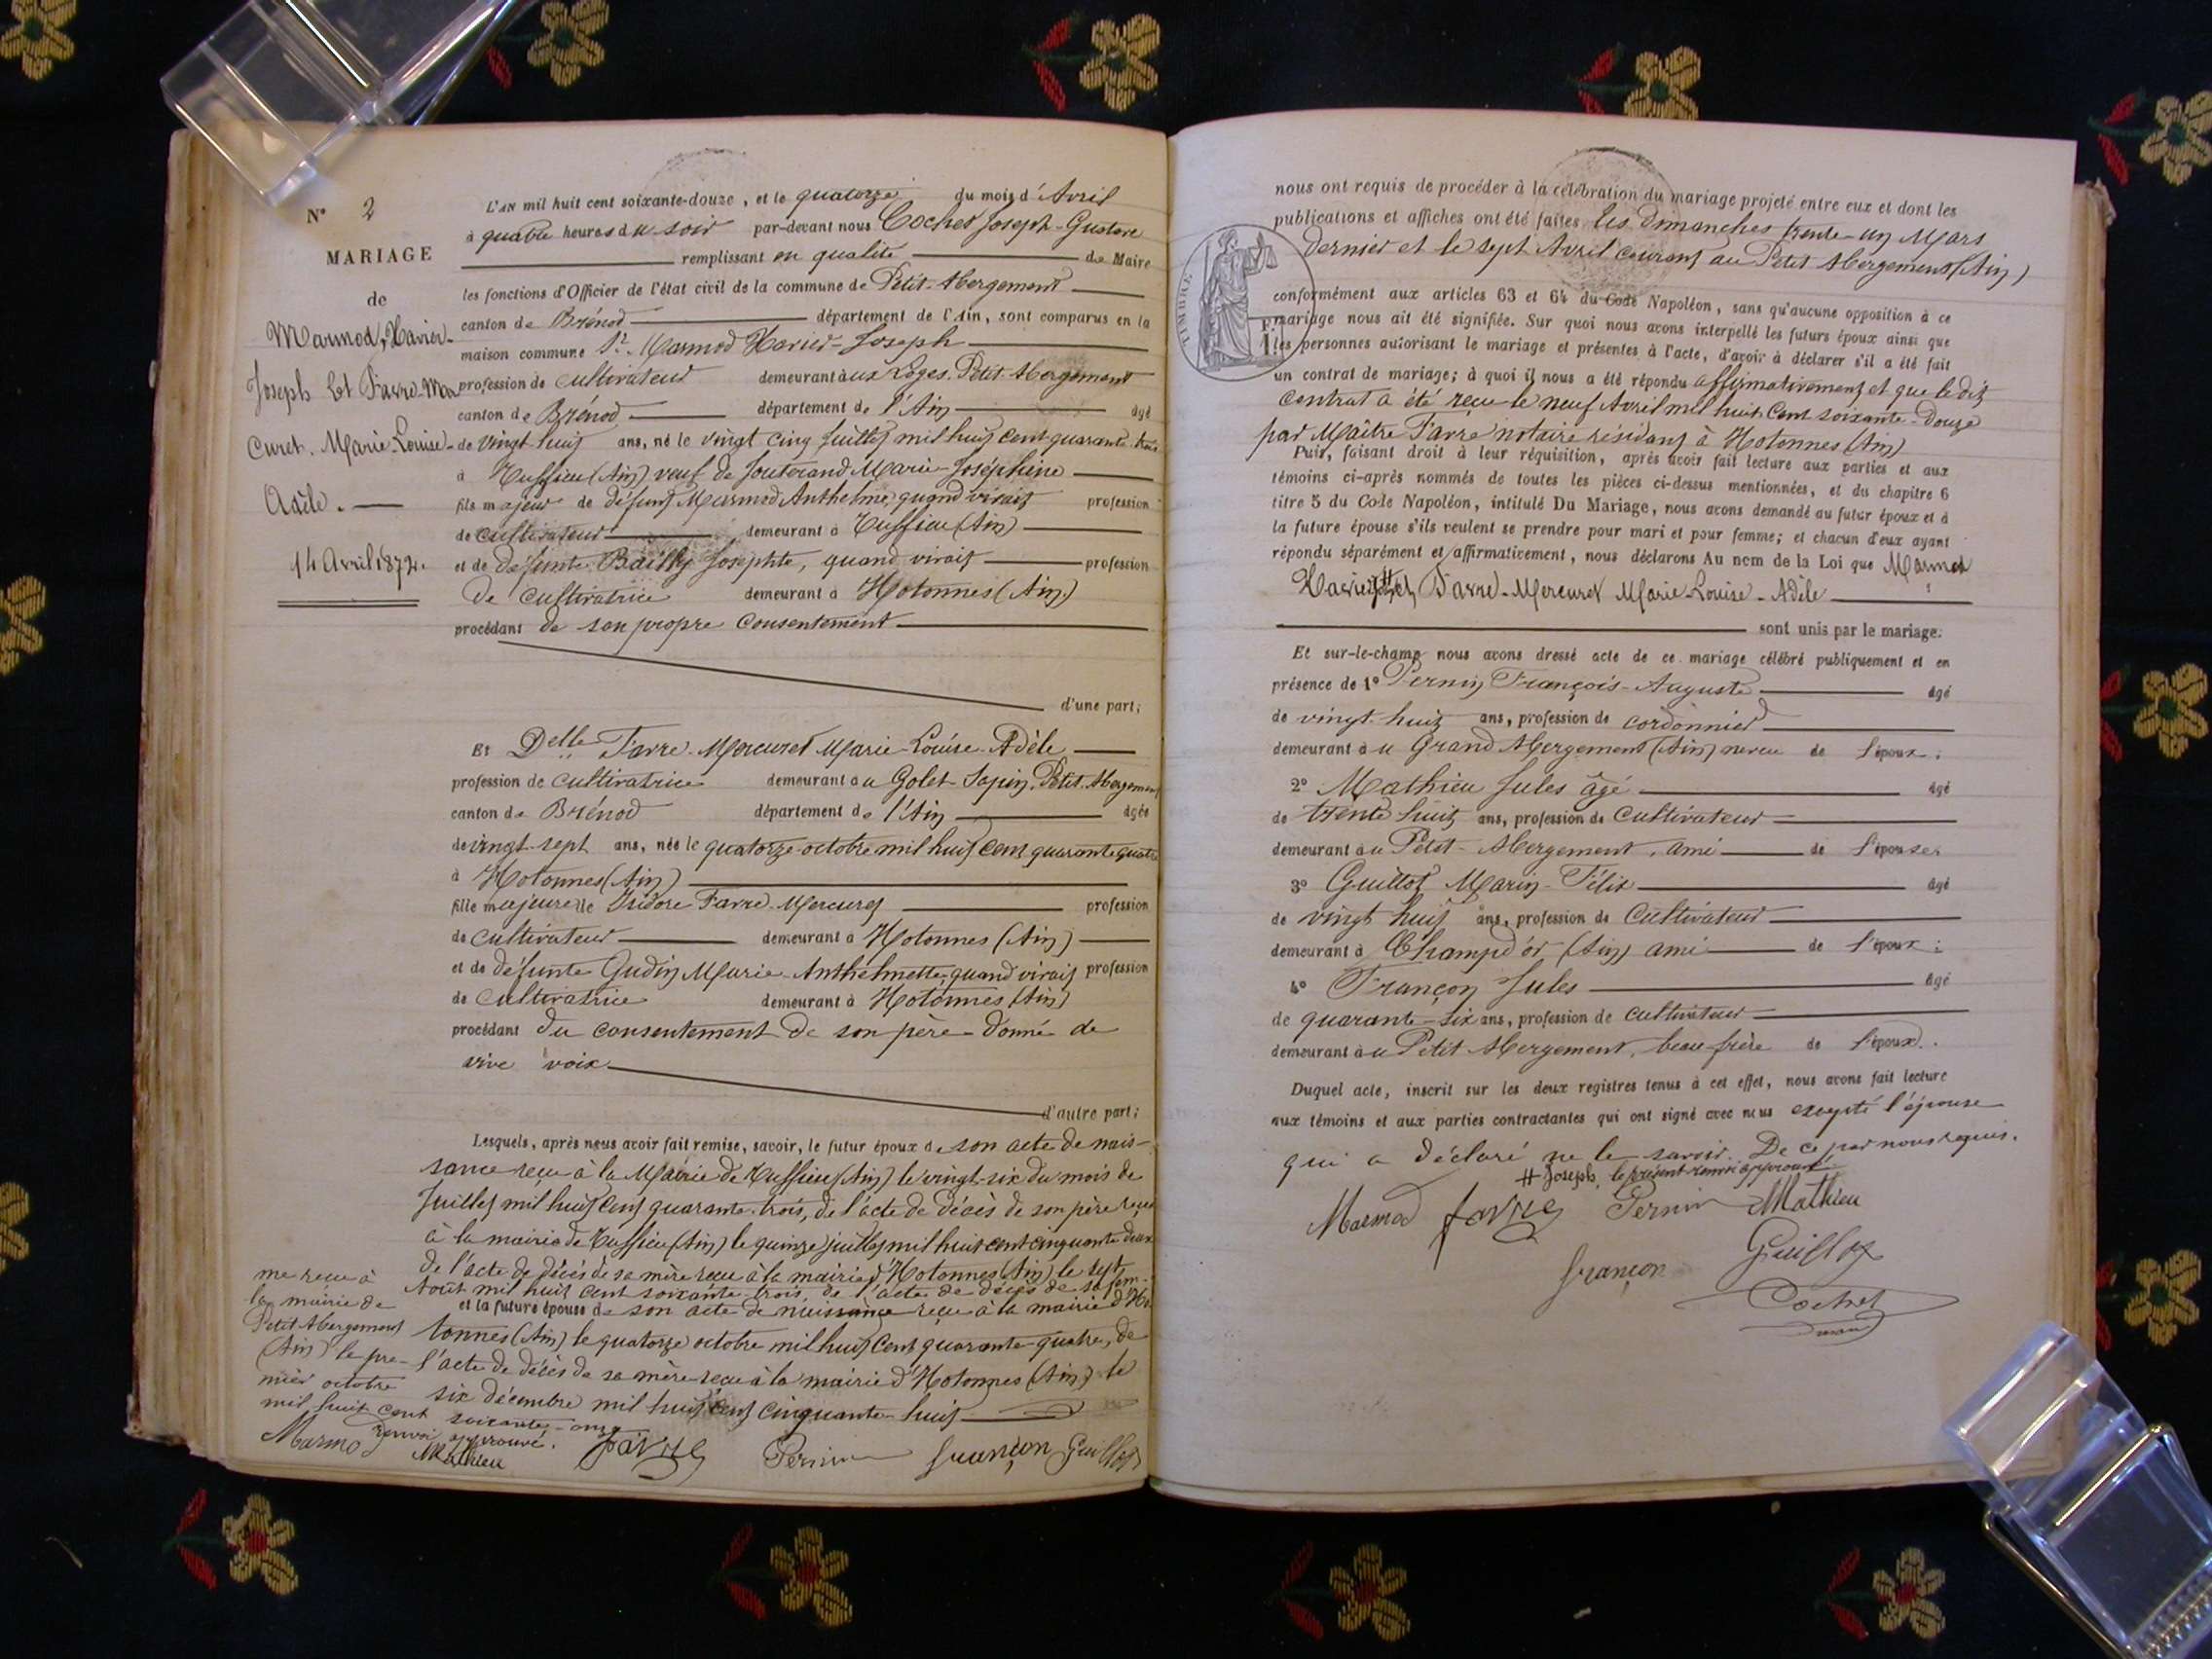 N° 2
MARIAGE
de
Marmod, Xavier-
Joseph Et Favre-Mer
curet. Marie-Louise-
Adèle.
14 Avril 1872.
L'AN mil huit cent soixante-douze, et le quatorze du mois d'Avril
à quatre heures du soir par-devant nous Cochet Joseph-Gustave
remplissant en qualité de Maire
les fonctions d'Officier de l'état civil de la commune de Petit-Abergement
canton de Brénod département de l'Ain, sont comparus en la
maison commune Sr. Marmod Xavier-Joseph
profession de cultivateur demeurant aux Loges. Petit-Abergement
canton de Brénod département de l'Ain âgé
de vingt huit ans, né le vingt cinq juillet mil huit cent quarante-trois
à Ruffieu (Ain) veuf de Jouterand Marie-Joséphine
fils majeur de défunt Marmod Anthelme, quand vivait profession
de cultivateur demeurant à Ruffieu (Ain)
et de défunte Bailly Josephte, quand vivait profession
de cultivatrice demeurant à Hotonnes (Ain)
procédant de son propre consentement
d'une part;
Et Delle Favre-Mercuret Marie-Louise-Adèle
profession de cultivatrice demeurant au Golet-Sapin, Petit-Abergement
canton de Brénod département de l'Ain âgée
de vingt-sept ans, née le quatorze octobre mil huit cent quarante quatre
à Hotonnes (Ain)
fille majeure de Isidore Favre-Mercuret profession
de cultivateur demeurant à Hotonnes (Ain)
et de défunte Gudin Marie-Anthelmette, quand vivait profession
de cultivatrice demeurant à Hotonnes (Ain)
procédant du consentement de son père donné de
vive voix
d'autre part;
Lesquels, après nous avoir fait remise, savoir, le futur époux de son acte de nais-
sance reçu à la Mairie de Ruffieu (Ain) le vingt-six du mois de
Juillet mil huit cent quarante-trois, de l'acte de décès de son père reçu
à la mairie de Ruffieu (Ain) le quinze juillet mil huit cent cinquante deux
de l'acte de décès de sa mère reçu à la mairie d'Hotonnes (Ain) le sept
Août mil huit cent soixante-trois, de l'acte de décès de sa fem-
me reçu à
la mairie de
Petit Abergement
(Ain) le pre-
mier octobre
mil huit cent soixante-onze
renvoi approuvé.
et la future épouse de son acte de naissance reçu à la mairie d'Ho-
tonnes (Ain) le quatorze octobre mil huit cent quarante-quatre, de
l'acte de décès de sa mère reçu à la mairie d'Hotonnes (Ain) le
six décembre mil huit cent cinquante-huit
Marmod Mathieu favre Pernin françon Guillot
nous ont requis de procéder à la célébration du mariage projeté entre eux et dont les
publications et affiches ont été faites les dimanches trente-un Mars
dernier et le sept Avril courant au Petit Abergement (Ain)
TIMBRE
conformément aux articles 63 et 64 du Code Napoléon, sans qu'aucune opposition à ce
mariage nous ait été signifiée. Sur quoi nous avons interpellé les futurs époux ainsi que
les personnes autorisant le mariage et présentes à l'acte, d'avoir à déclarer s'il a été fait
un contrat de mariage; à quoi il nous a été répondu affirmativement et que ledit
contrat a été reçu le neuf Avril mil huit cent soixante-Douze
par Maître Favre notaire résidant à Hotonnes (Ain)
Puis, faisant droit à leur réquisition, après avoir fait lecture aux parties et aux
témoins ci-après nommés de toutes les pièces ci-dessus mentionnées, et du chapitre 6
titre 5 du Code Napoléon, intitulé Du Mariage, nous avons demandé au futur époux et à
la future épouse s'ils veulent se prendre pour mari et pour femme; et chacun d'eux ayant
répondu séparément et affirmativement, nous déclarons Au nom de la Loi que Marmod
Xavier # et Favre-Mercuret Marie-Louise-Adèle
sont unis par le mariage.
Et sur-le-champ nous avons dressé acte de ce mariage célébré publiquement et en
présence de 1° Pernin François-Auguste âgé
de vingt-huit ans, profession de cordonnier
demeurant au Grand Abergement (Ain) neveu de l'époux;
2° Mathieu Jules âgé âgé
de trente huit ans, profession de cultivateur
demeurant au Petit-Abergement, ami de l'épouse;
3° Guillot Marin-Félix âgé
de vingt huit ans, profession de cultivateur
demeurant à Champd'or (Ain) ami de l'époux;
4° Françon Jules âgé
de quarante-six ans, profession de cultivateur
demeurant au Petit Abergement, beau-frère de l'époux.
Duquel acte, inscrit sur les deux registres tenus à cet effet, nous avons fait lecture
aux témoins et aux parties contractantes qui ont signé avec nous excepté l'épouse
qui a déclaré ne le savoir. De ce par nous requis.
# Joseph, le présent renvoi approuvé
Marmod favre Pernin Mathieu
Guillot
françon
Cochet